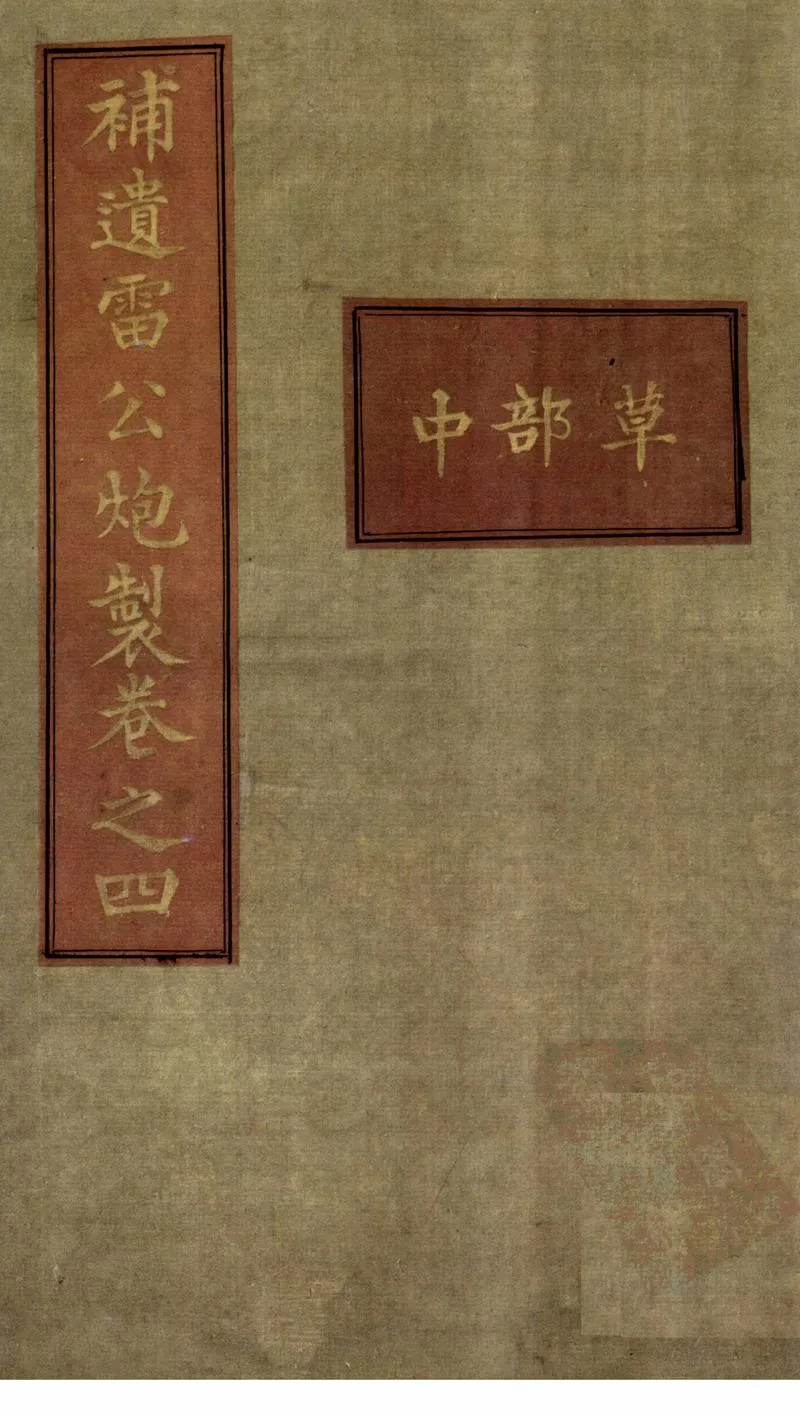 補遺雷公炮製卷之四
草部中